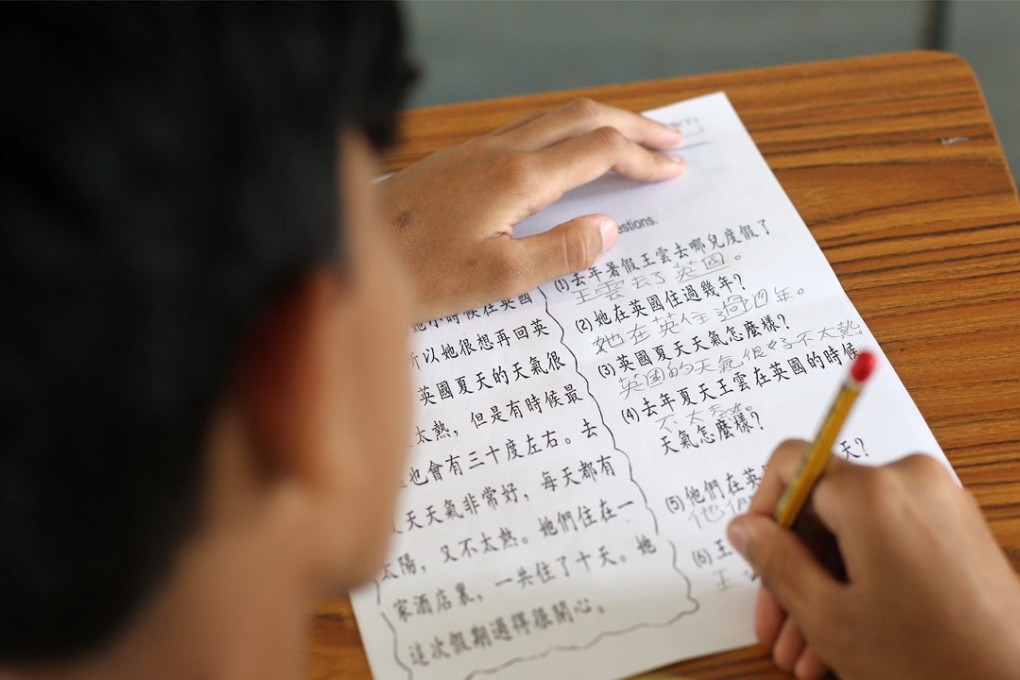 estions.
小時候在英國
所以她很想再回英
英國夏天的天氣很
太熱，但是有時候最
也會有三十度左右。去
天天氣非常好，每天都有
太陽，又不太熱。她們住在一
家酒店裏，一共住了十天。她
這次假期過得很開心。
(1)去年暑假王雲去哪兒度假了
王雲去了英國。
(2)她在英國住過幾年？
她在英住過四年。
(3)英國夏天天氣怎麼樣？
英國的天氣很好不太熱。
(4)去年夏天王雲在英國的時候
不太熱。
天氣怎麼樣？
(5)他們在英 天？
他們
(6)王
王